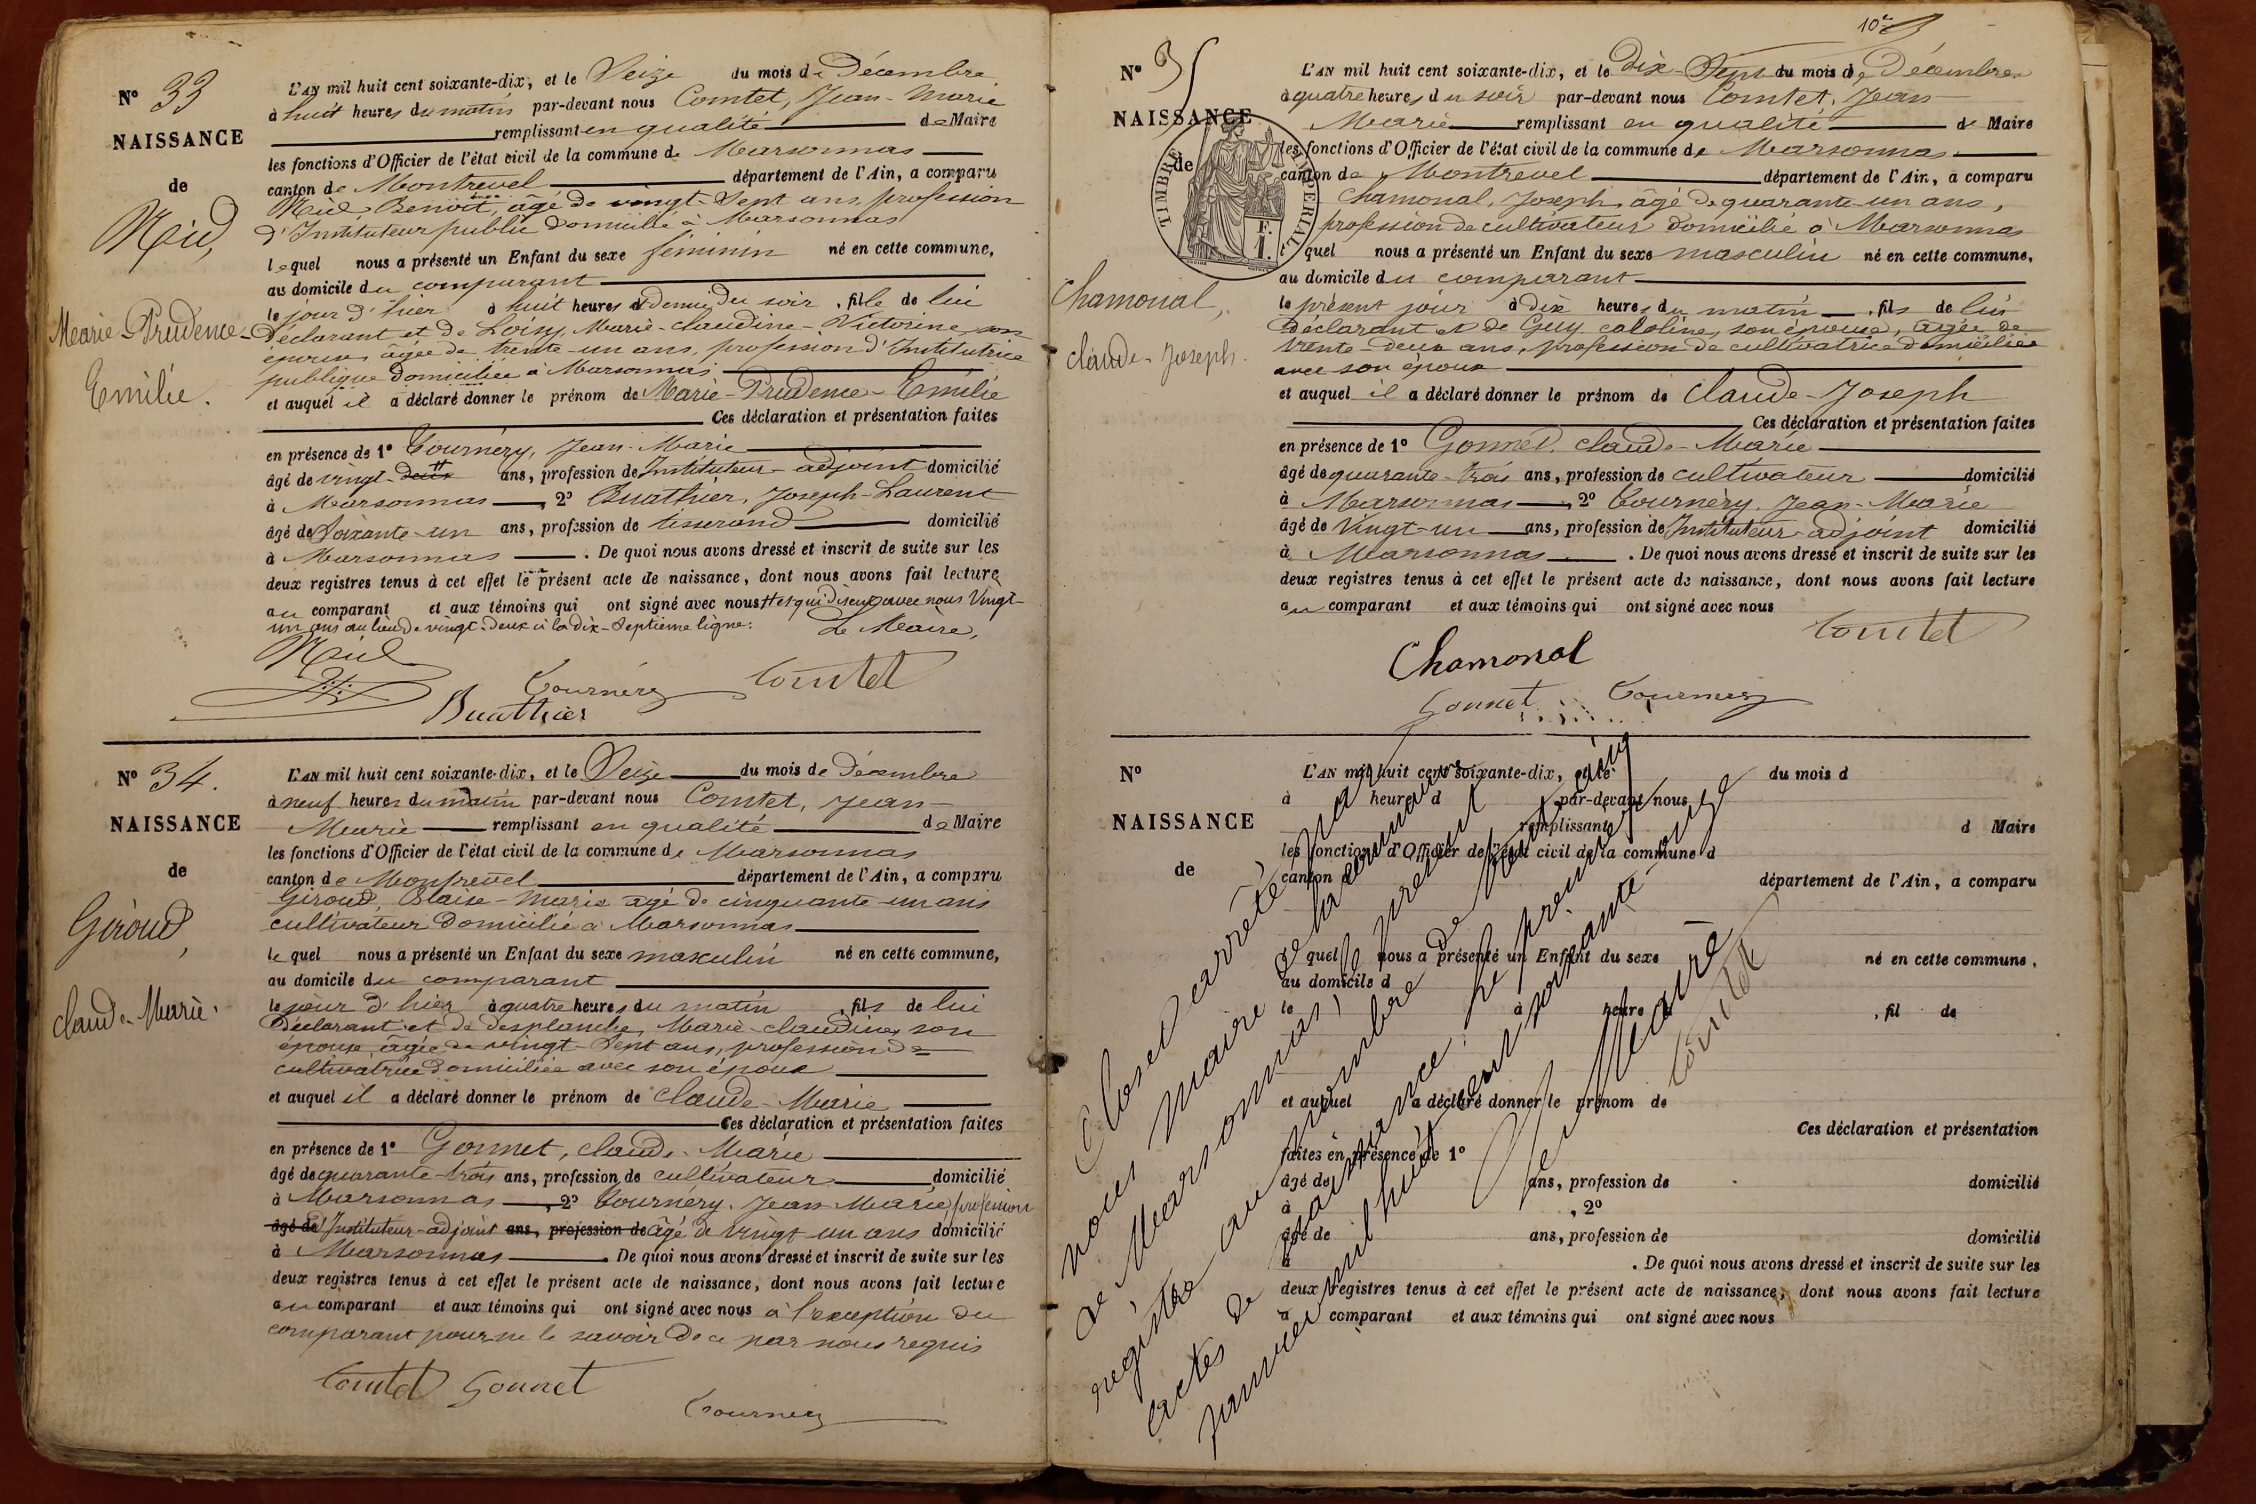 N° 33
NAISSANCE
de
Niel,
Marie-Prudence-
Emilie.
L'AN mil huit cent soixante-dix, et le Seize du mois de Décembre
à huit heures du matin par-devant nous Comtet, Jean-Marie
remplissant en qualité de Maire
les fonctions d'Officier de l'état civil de la commune de Marsonnas
canton de Montrevel département de l'Ain, a comparu
Niel Benoit, âgé de vingt-Sept ans, profession
d'Instituteur public domicilié à Marsonnas
lequel nous a présenté un Enfant du sexe féminin né en cette commune,
au domicile du comparant
le jour d'hier à huit heures et demie du soir, fille de lui
déclarant et de Loisy, Marie-Claudine-Victorine, son
épouse, âgée de trente-un ans, profession d'Institutrice
publique domiciliée à Marsonnas
et auquel il a déclaré donner le prénom de Marie-Prudence-Emilie
Ces déclaration et présentation faites
en présence de 1° Tournéry, Jean-Marie
âgé de vingt-deux ans, profession de Instituteur-adjoint domicilié
à Marsonnas, 2° Buathier, Joseph-Laurent
âgé de Soixante-un ans, profession de tisserand domicilié
à Marsonnas. De quoi nous avons dressé et inscrit de suite sur les
deux registres tenus à cet effet le présent acte de naissance, dont nous avons fait lecture
au comparant et aux témoins qui ont signé avec nous # et qui disent avec nous Vingt-
un ans au lieu de vingt-deux à la dix-Septième ligne. Le Maire,
Niel
Tournéry Comtet
Buathier
N° 34.
NAISSANCE
de
Giroud,
Claude-Marie.
L'AN mil huit cent soixante-dix, et le Seize du mois de Décembre
à neuf heures du matin par-devant nous Comtet, Jean-
Marie remplissant en qualité de Maire
les fonctions d'Officier de l'état civil de la commune de Marsonnas
canton de Montrevel département de l'Ain, a comparu
Giroud, Blaise-Marie âgé de cinquante-un ans
cultivateur domicilié à Marsonnas
lequel nous a présenté un Enfant du sexe masculin né en cette commune,
au domicile du comparant
le jour d'hier à quatre heures du matin, fils de lui
déclarant et de Desplanche, Marie-Claudine, son
épouse, âgée de vingt-Sept ans, profession de
cultivatrice domiciliée avec son époux
et auquel il a déclaré donner le prénom de Claude-Marie
Ces déclaration et présentation faites
en présence de 1° Gonnet, Claude-Marie
âgé de quarante-trois ans, profession de cultivateur domicilié
à Marsonnas, 2° Tournéry, Jean-Marie, profession
âgé de d'Instituteur-adjoint ans, profession de âgé de vingt-un ans domicilié
à Marsonnas. De quoi nous avons dressé et inscrit de suite sur les
deux registres tenus à cet effet le présent acte de naissance, dont nous avons fait lecture
au comparant et aux témoins qui ont signé avec nous à l'exception du
comparant pour ne le savoir de ce par nous requis
Comtet Gonnet
Tournéry
N° 35
NAISSANCE
de
TIMBRE IMPERIAL
1 F.
Chamonal,
Claude-Joseph.
L'AN mil huit cent soixante-dix, et le Dix-Sept du mois de Décembre
à quatre heures du soir par-devant nous Comtet, Jean
Marie remplissant en qualité de Maire
les fonctions d'Officier de l'état civil de la commune de Marsonnas
canton de Montrevel département de l'Ain, a comparu
Chamonal, Joseph, âgé de quarante-un ans,
profession de cultivateur domicilié à Marsonnas
lequel nous a présenté un Enfant du sexe masculin né en cette commune,
au domicile du comparant
le présent jour à dix heures du matin, fils de lui
déclarant et de Guy Caloline, son épouse, âgée de
trente-deux ans, profession de cultivatrice domiciliée
avec son époux
et auquel il a déclaré donner le prénom de Claude-Joseph
Ces déclaration et présentation faites
en présence de 1° Gonnet, Claude-Marie
âgé de quarante-trois ans, profession de cultivateur domicilié
à Marsonnas, 2° Tournéry, Jean-Marie
âgé de Vingt-un ans, profession de Instituteur-adjoint domicilié
à Marsonnas. De quoi nous avons dressé et inscrit de suite sur les
deux registres tenus à cet effet le présent acte de naissance, dont nous avons fait lecture
au comparant et aux témoins qui ont signé avec nous
Comtet
Chamonal
Gonnet Tournéry
N°
NAISSANCE
de
L'AN mil huit cent soixante-dix, et le du mois d
à heure d par-devant nous
remplissant d Maire
les fonctions d'Officier de l'état civil de la commune d
canton d département de l'Ain, a comparu
lequel nous a présenté un Enfant du sexe né en cette commune,
au domicile d
le à heure d , fil de
et auquel a déclaré donner le prénom de
Ces déclaration et présentation
faites en présence de 1°
âgé de ans, profession de domicilié
à , 2°
âgé de ans, profession de domicilié
à . De quoi nous avons dressé et inscrit de suite sur les
deux registres tenus à cet effet le présent acte de naissance, dont nous avons fait lecture
a comparant et aux témoins qui ont signé avec nous
Clos et arrêté par
nous Maire de la commune
de Marsonnas, le présent
registre au nombre de trente-cinq
actes de naissance, le premier
janvier mil huit cent soixante-onze
Le Maire
Comtet